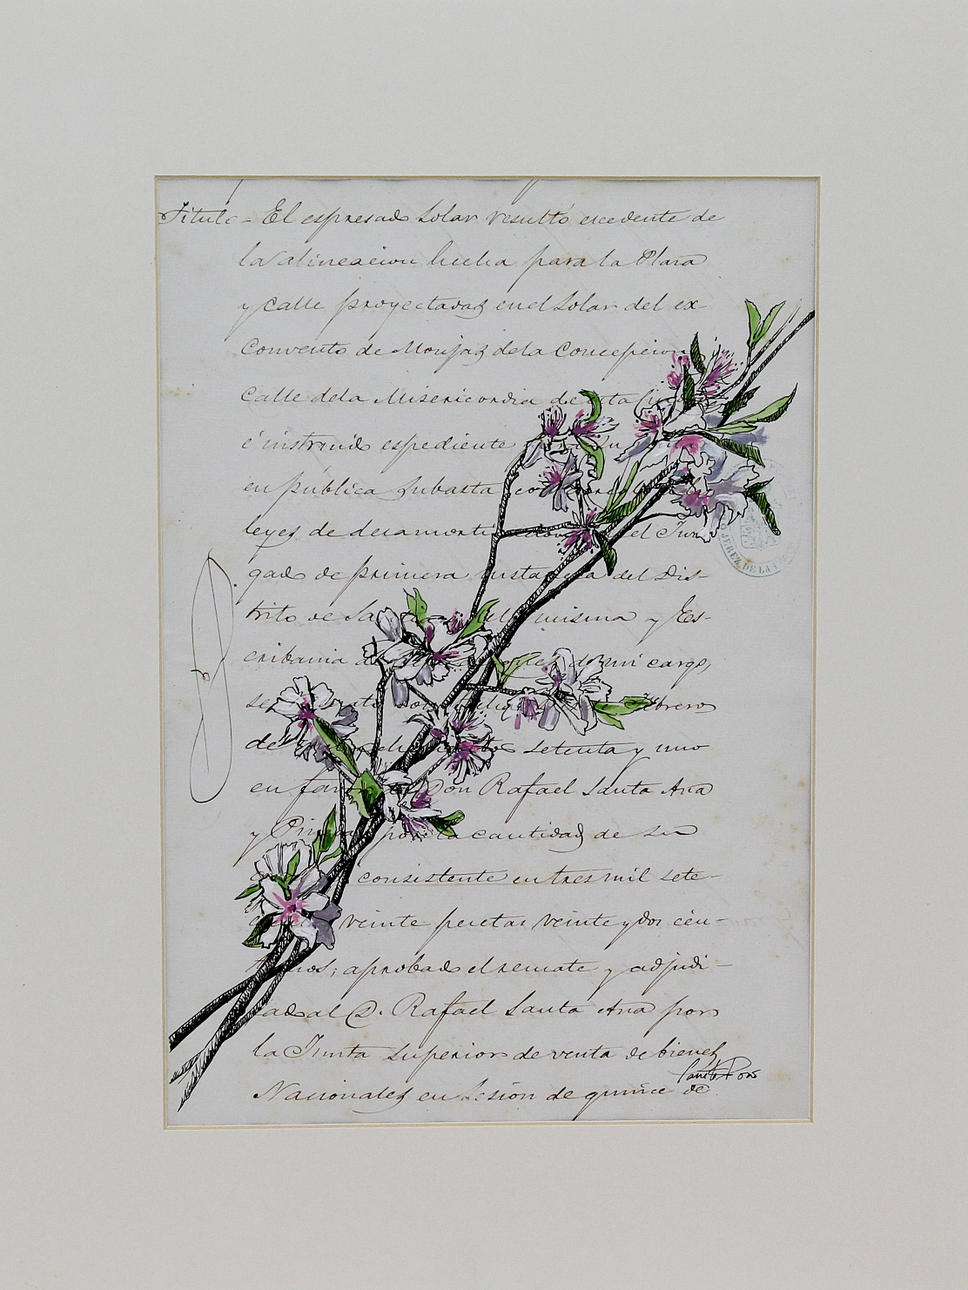 Titulo - El espresado Solar resultó excedente de
la alineacion hecha para la Plaza
y calle proyectadas en el Solar del ex-
Convento de Monjas de la Concepcion
calle de la Misericordia de esta
é instruido espediente
en pública subasta
leyes de desamorti el Juz-
gado de primera instancia del Dis-
trito de la misma y Es-
cribania de mi cargo,
de setenta y uno
en Don Rafael Santa Ana
y por la cantidad de su
consistente en tres mil sete-
veinte pesetas veinte y dos cén-
timos; aprobado el remate y adjudi-
cado al D. Rafael Santa Ana por
la Junta Superior de venta de bienes
Nacionales en sesion de quince de
JEREZ DE LA